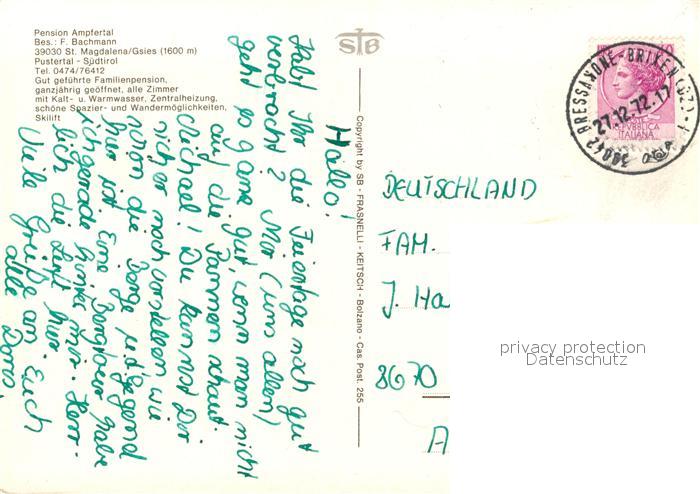 Pension Ampfertal
Bes.: F. Bachmann
39030 St. Magdalena/Gsies (1600 m)
Pustertal - Südtirol
Tel. 0474/76412
Gut geführte Familienpension,
ganzjährig geöffnet, alle Zimmer
mit Kalt- u. Warmwasser, Zentralheizung,
schöne Spazier- und Wandermöglichkeiten,
Skilift
Hallo!
Habt Ihr die Feiertage noch gut
verbracht? Mir (uns allen)
geht so ganz gut, wenn man nicht
auf die Tannen schaut.
Michael! Du kannst Dir
sicher noch vorstellen wie
schön die Berge, u. d. Gegend
hier ist. Eine Bergtour habe
ich gerade hinter mir. Herr-
lich die Luft hier.
Viele Grüße an Euch
alle Doris.
STB
Copyright by SB - FRASNELLI - KEITSCH - Bolzano - Cas. Post. 255
39042 BRESSANONE-BRIXEN (BZ)
27.12.72.17
REPVBBLICA
ITALIANA
DEUTSCHLAND
FAM.
J. Ha
8670
A
privacy protection
Datenschutz